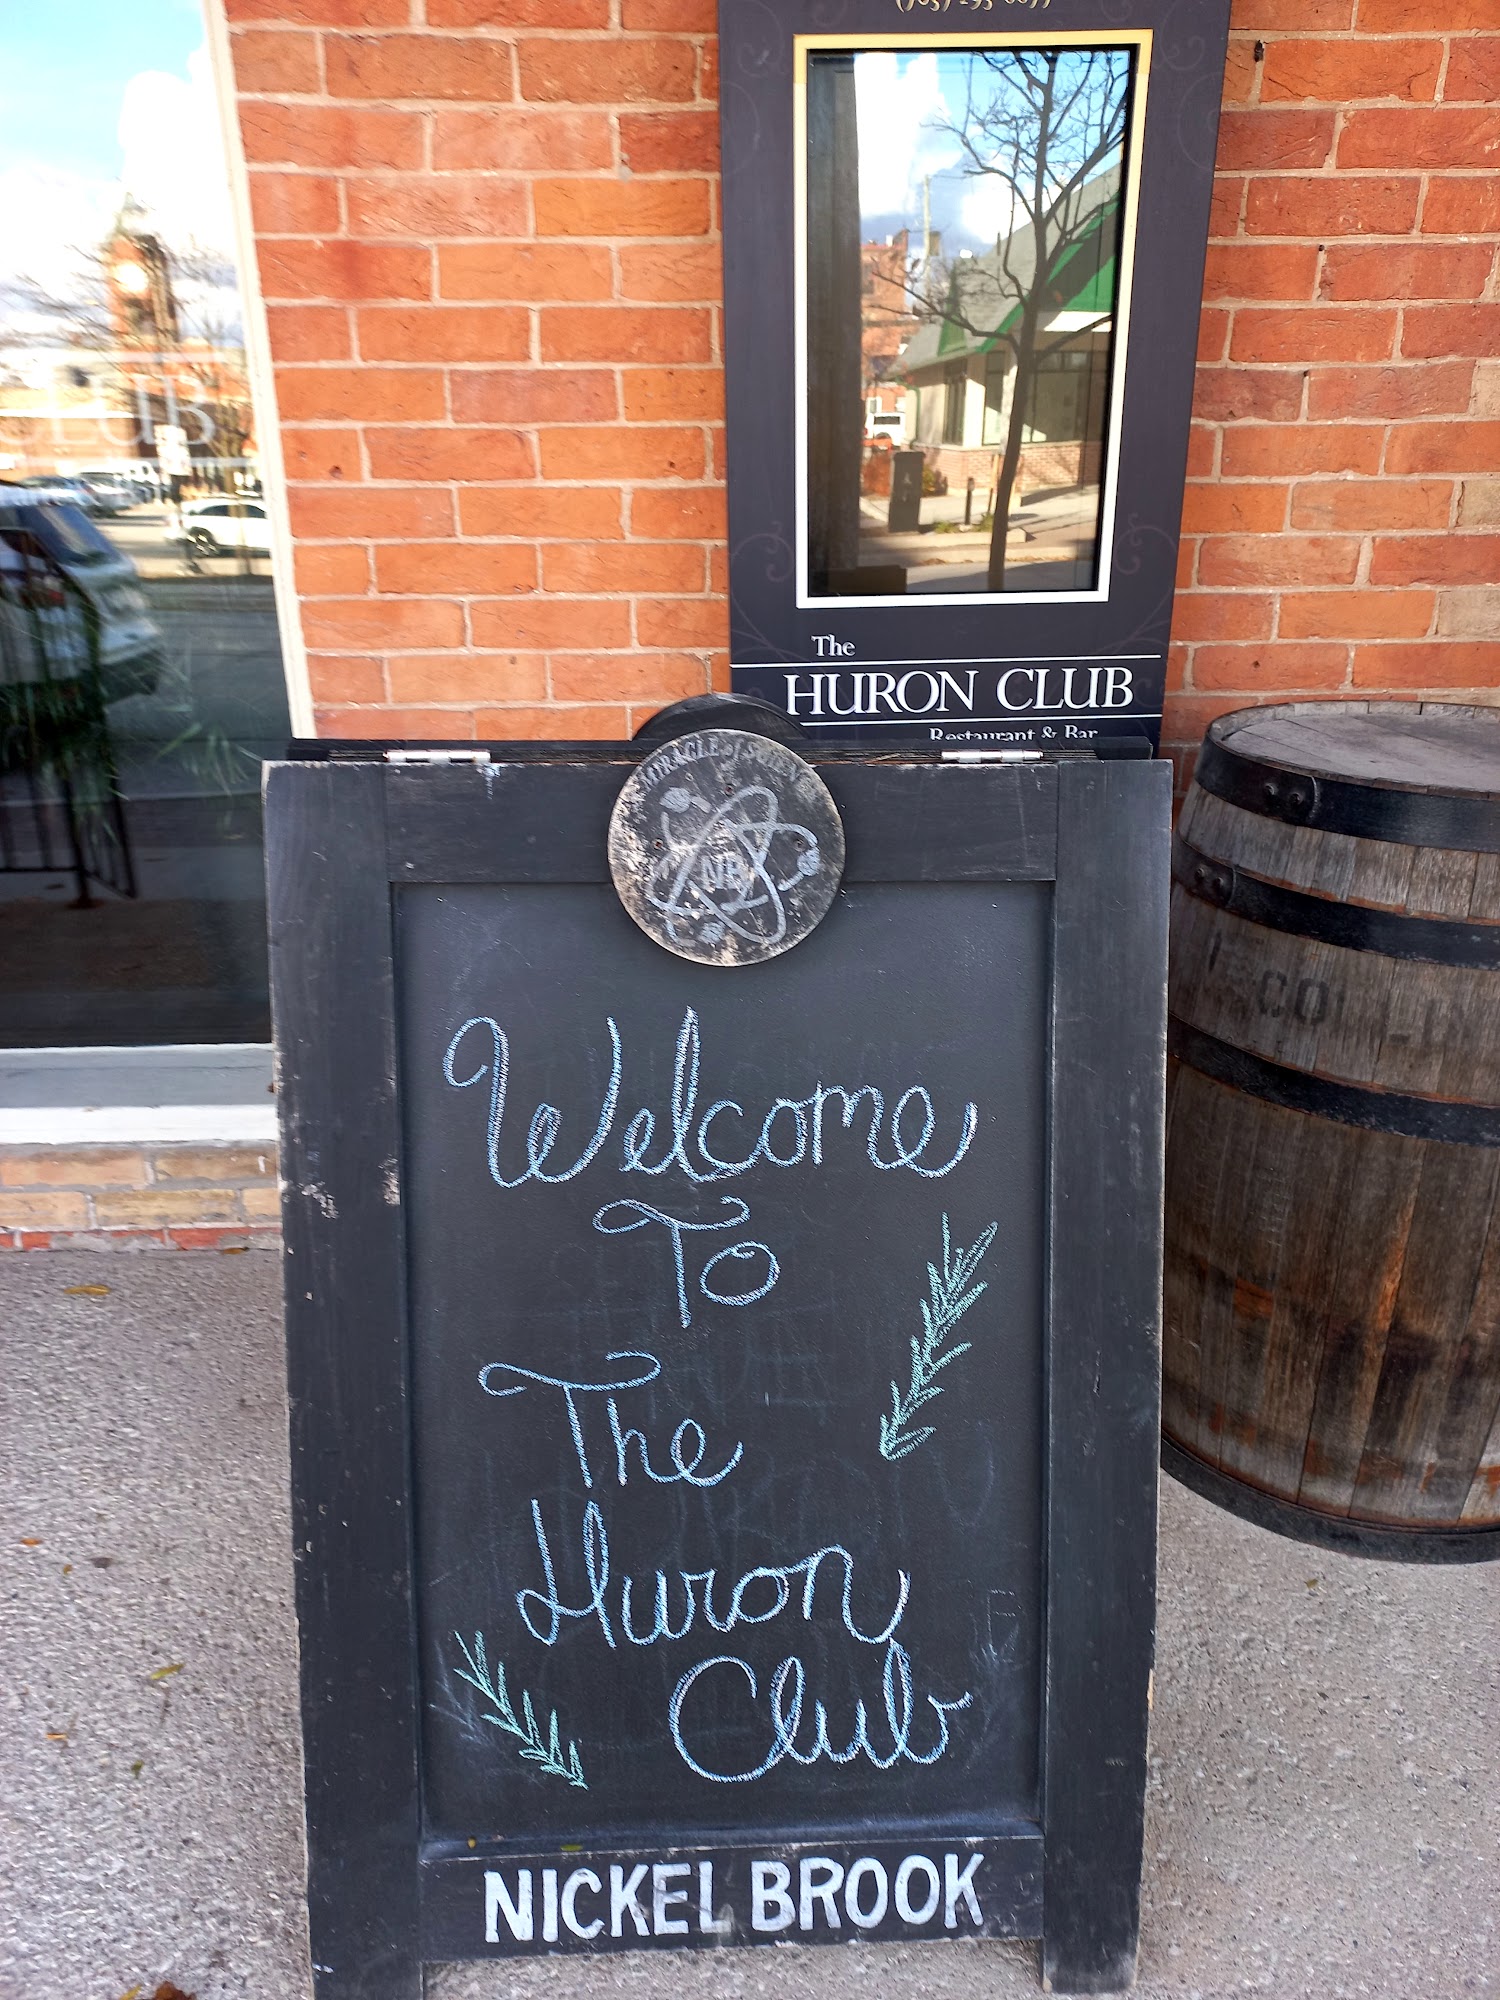 The
HURON CLUB
Restaurant & Bar
CLUB
MIRACLE of SCIENCE
NB
Welcome
To
The
Huron
Club
NICKEL BROOK